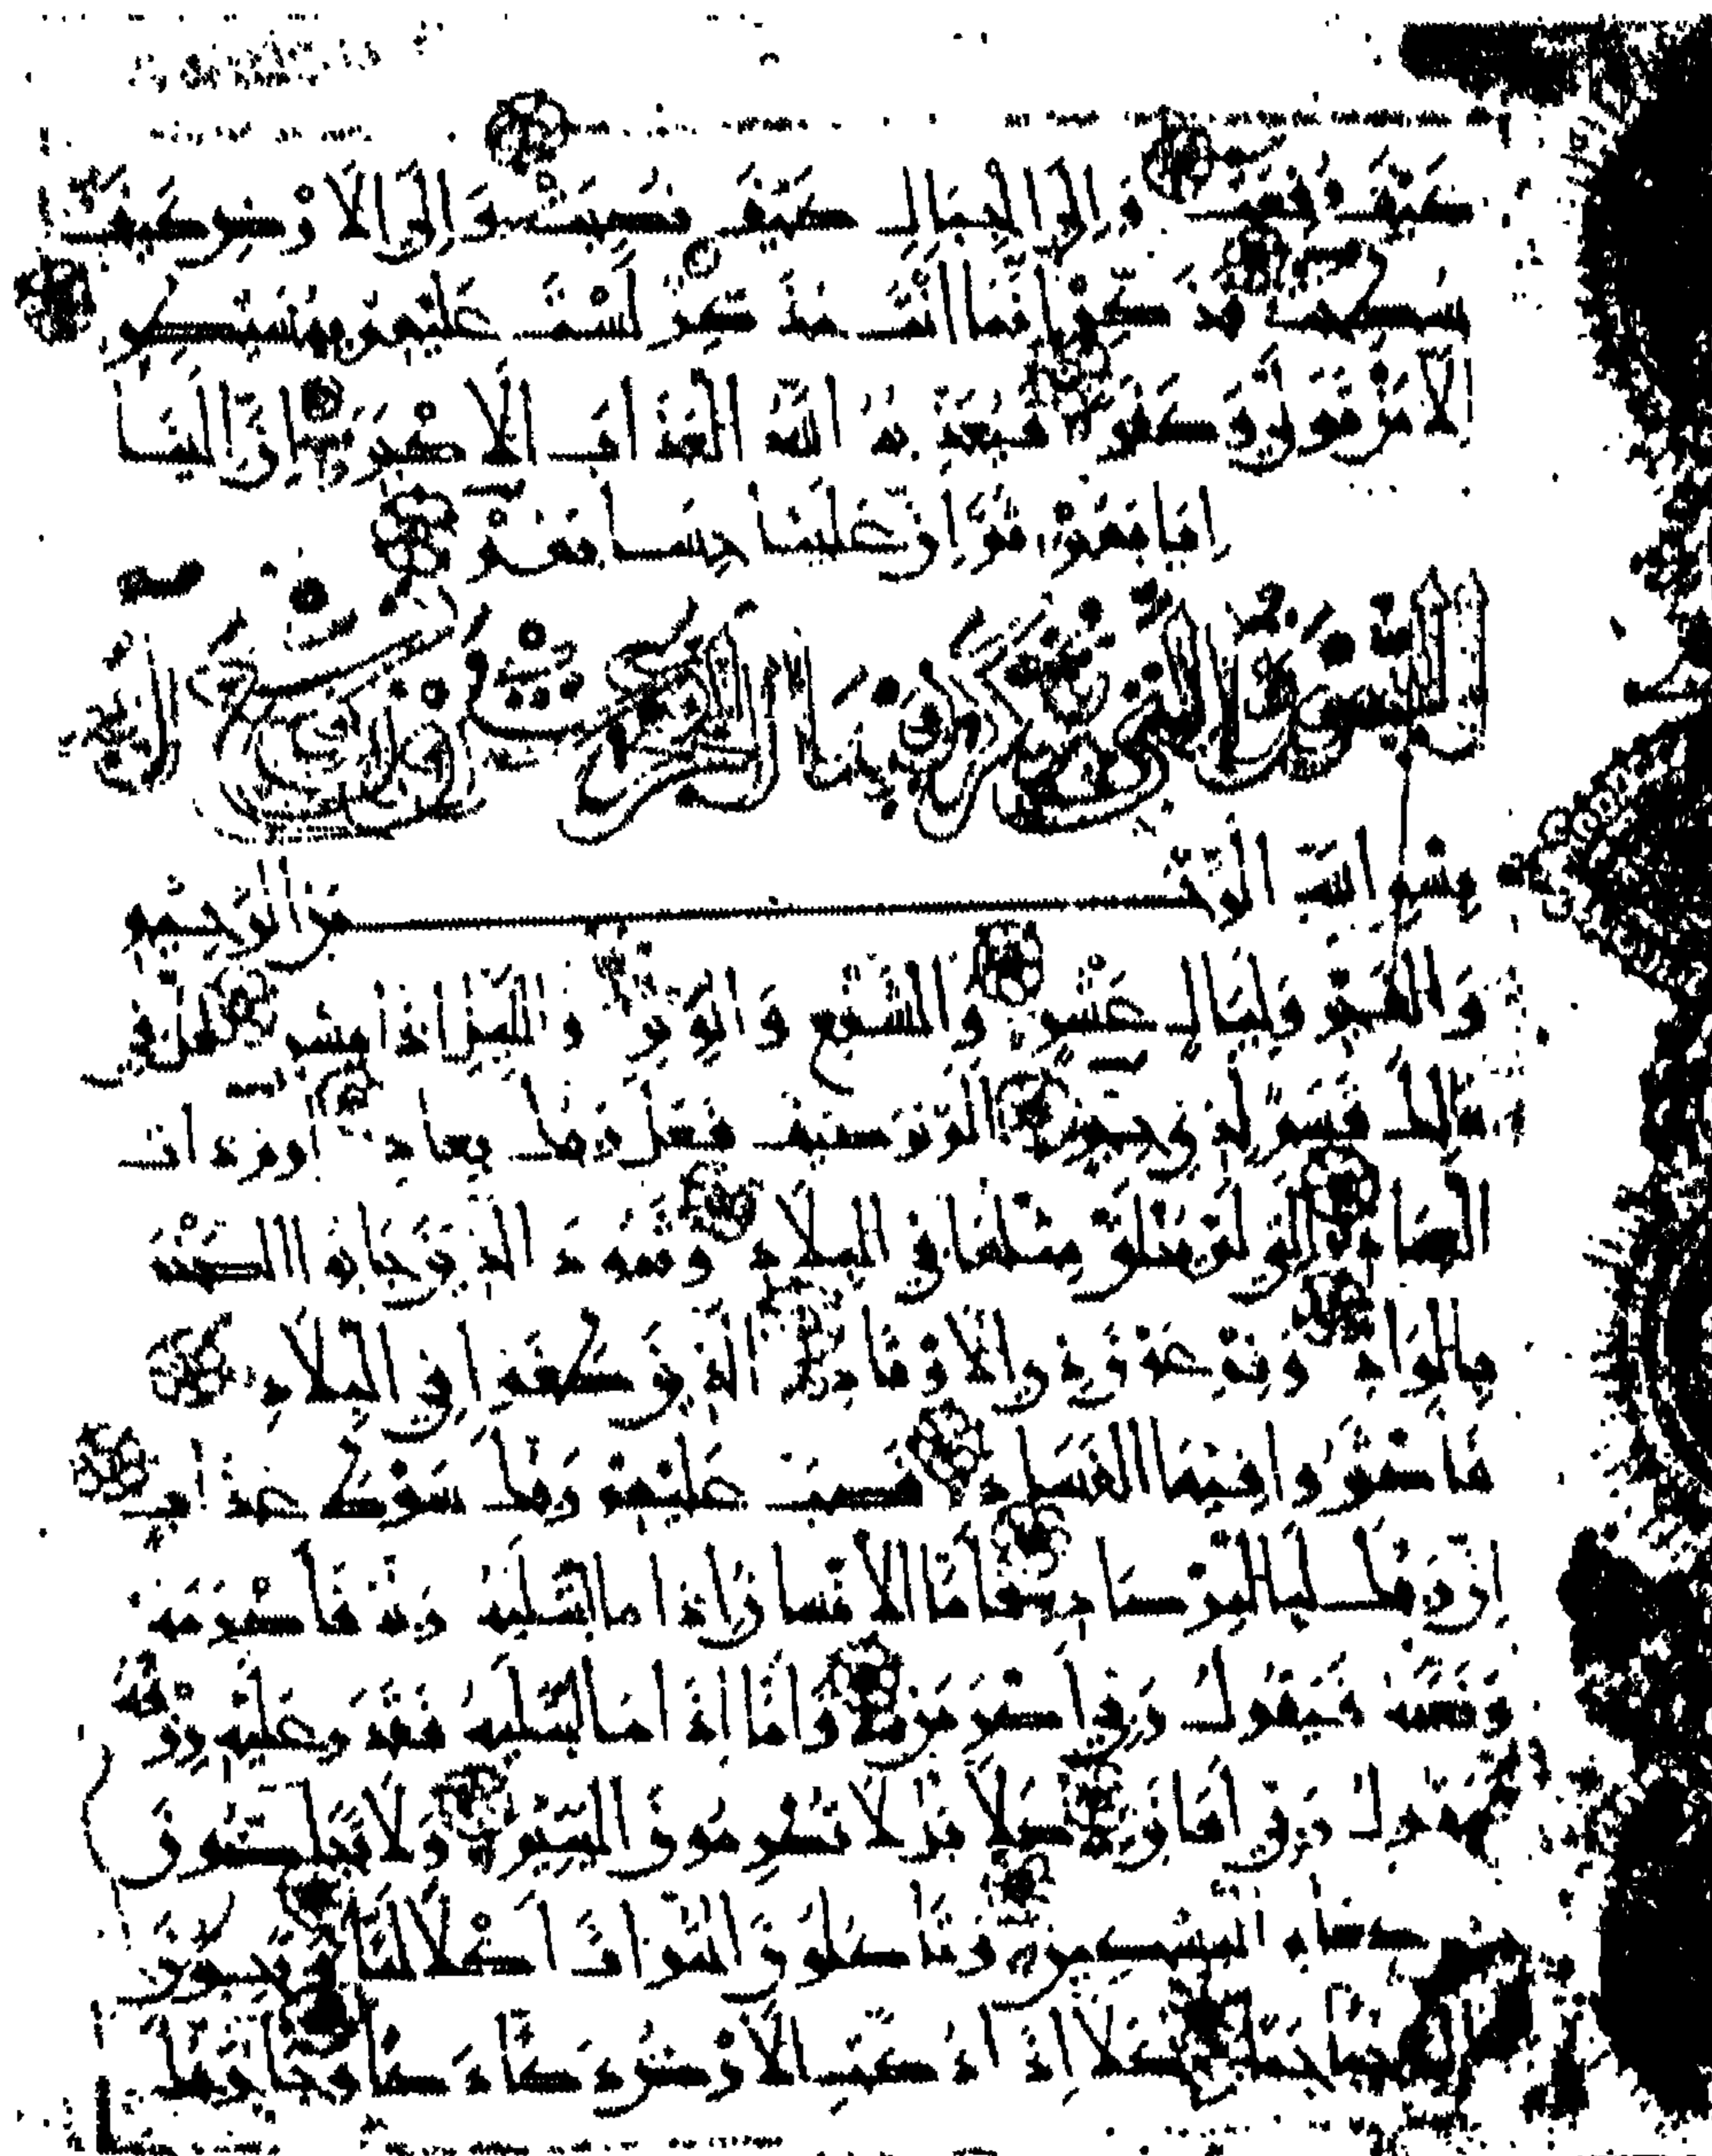 كيف رفعت وإلى الجبال كيف نصبت وإلى الأرض كيف
سطحت فذكر إنما أنت مذكر لست عليهم بمسيطر
إلا من تولى وكفر فيعذبه الله العذاب الأكبر إن إلينا
إيابهم ثم إن علينا حسابهم
السورة التي يذكر فيها الفجر
بسم الله الرحمن الرحيم
والفجر وليال عشر والشفع والوتر والليل إذا يسر هل في
ذلك قسم لذي حجر ألم تر كيف فعل ربك بعاد إرم ذات
العماد التي لم يخلق مثلها في البلاد وثمود الذين جابوا الصخر
بالواد وفرعون ذي الأوتاد الذين طغوا في البلاد
فأكثروا فيها الفساد فصب عليهم ربك سوط عذاب
إن ربك لبالمرصاد فأما الإنسان إذا ما ابتليه ربه فأكرمه
ونعمه فيقول ربي أكرمن وأما إذا ما ابتليه فقدر عليه رزقه
فيقول ربي أهانن كلا بل لا تكرمون اليتيم ولا تحضون
على طعام المسكين وتأكلون التراث أكلا لما وتحبون
المال حبا جما كلا إذا دكت الأرض دكا دكا وجا ربك